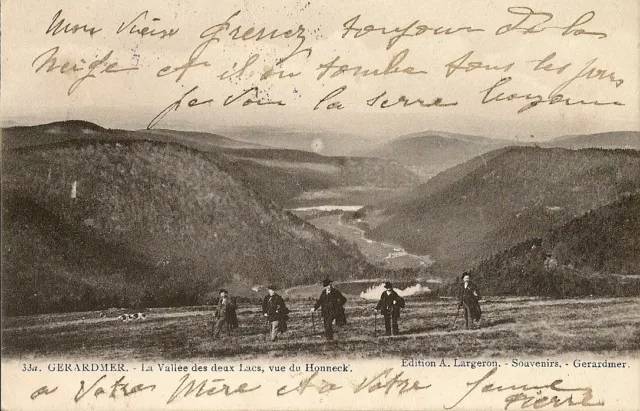 Mon vieux prenez toujours de la
neige et il en tombe tous les jours
je vous la serre
33a. GERARDMER. - La Vallée des deux Lacs, vue du Honneck.
Edition A. Largeron. - Souvenirs. - Gerardmer.
a Votre Mère et a Votre Jeune
Pierre